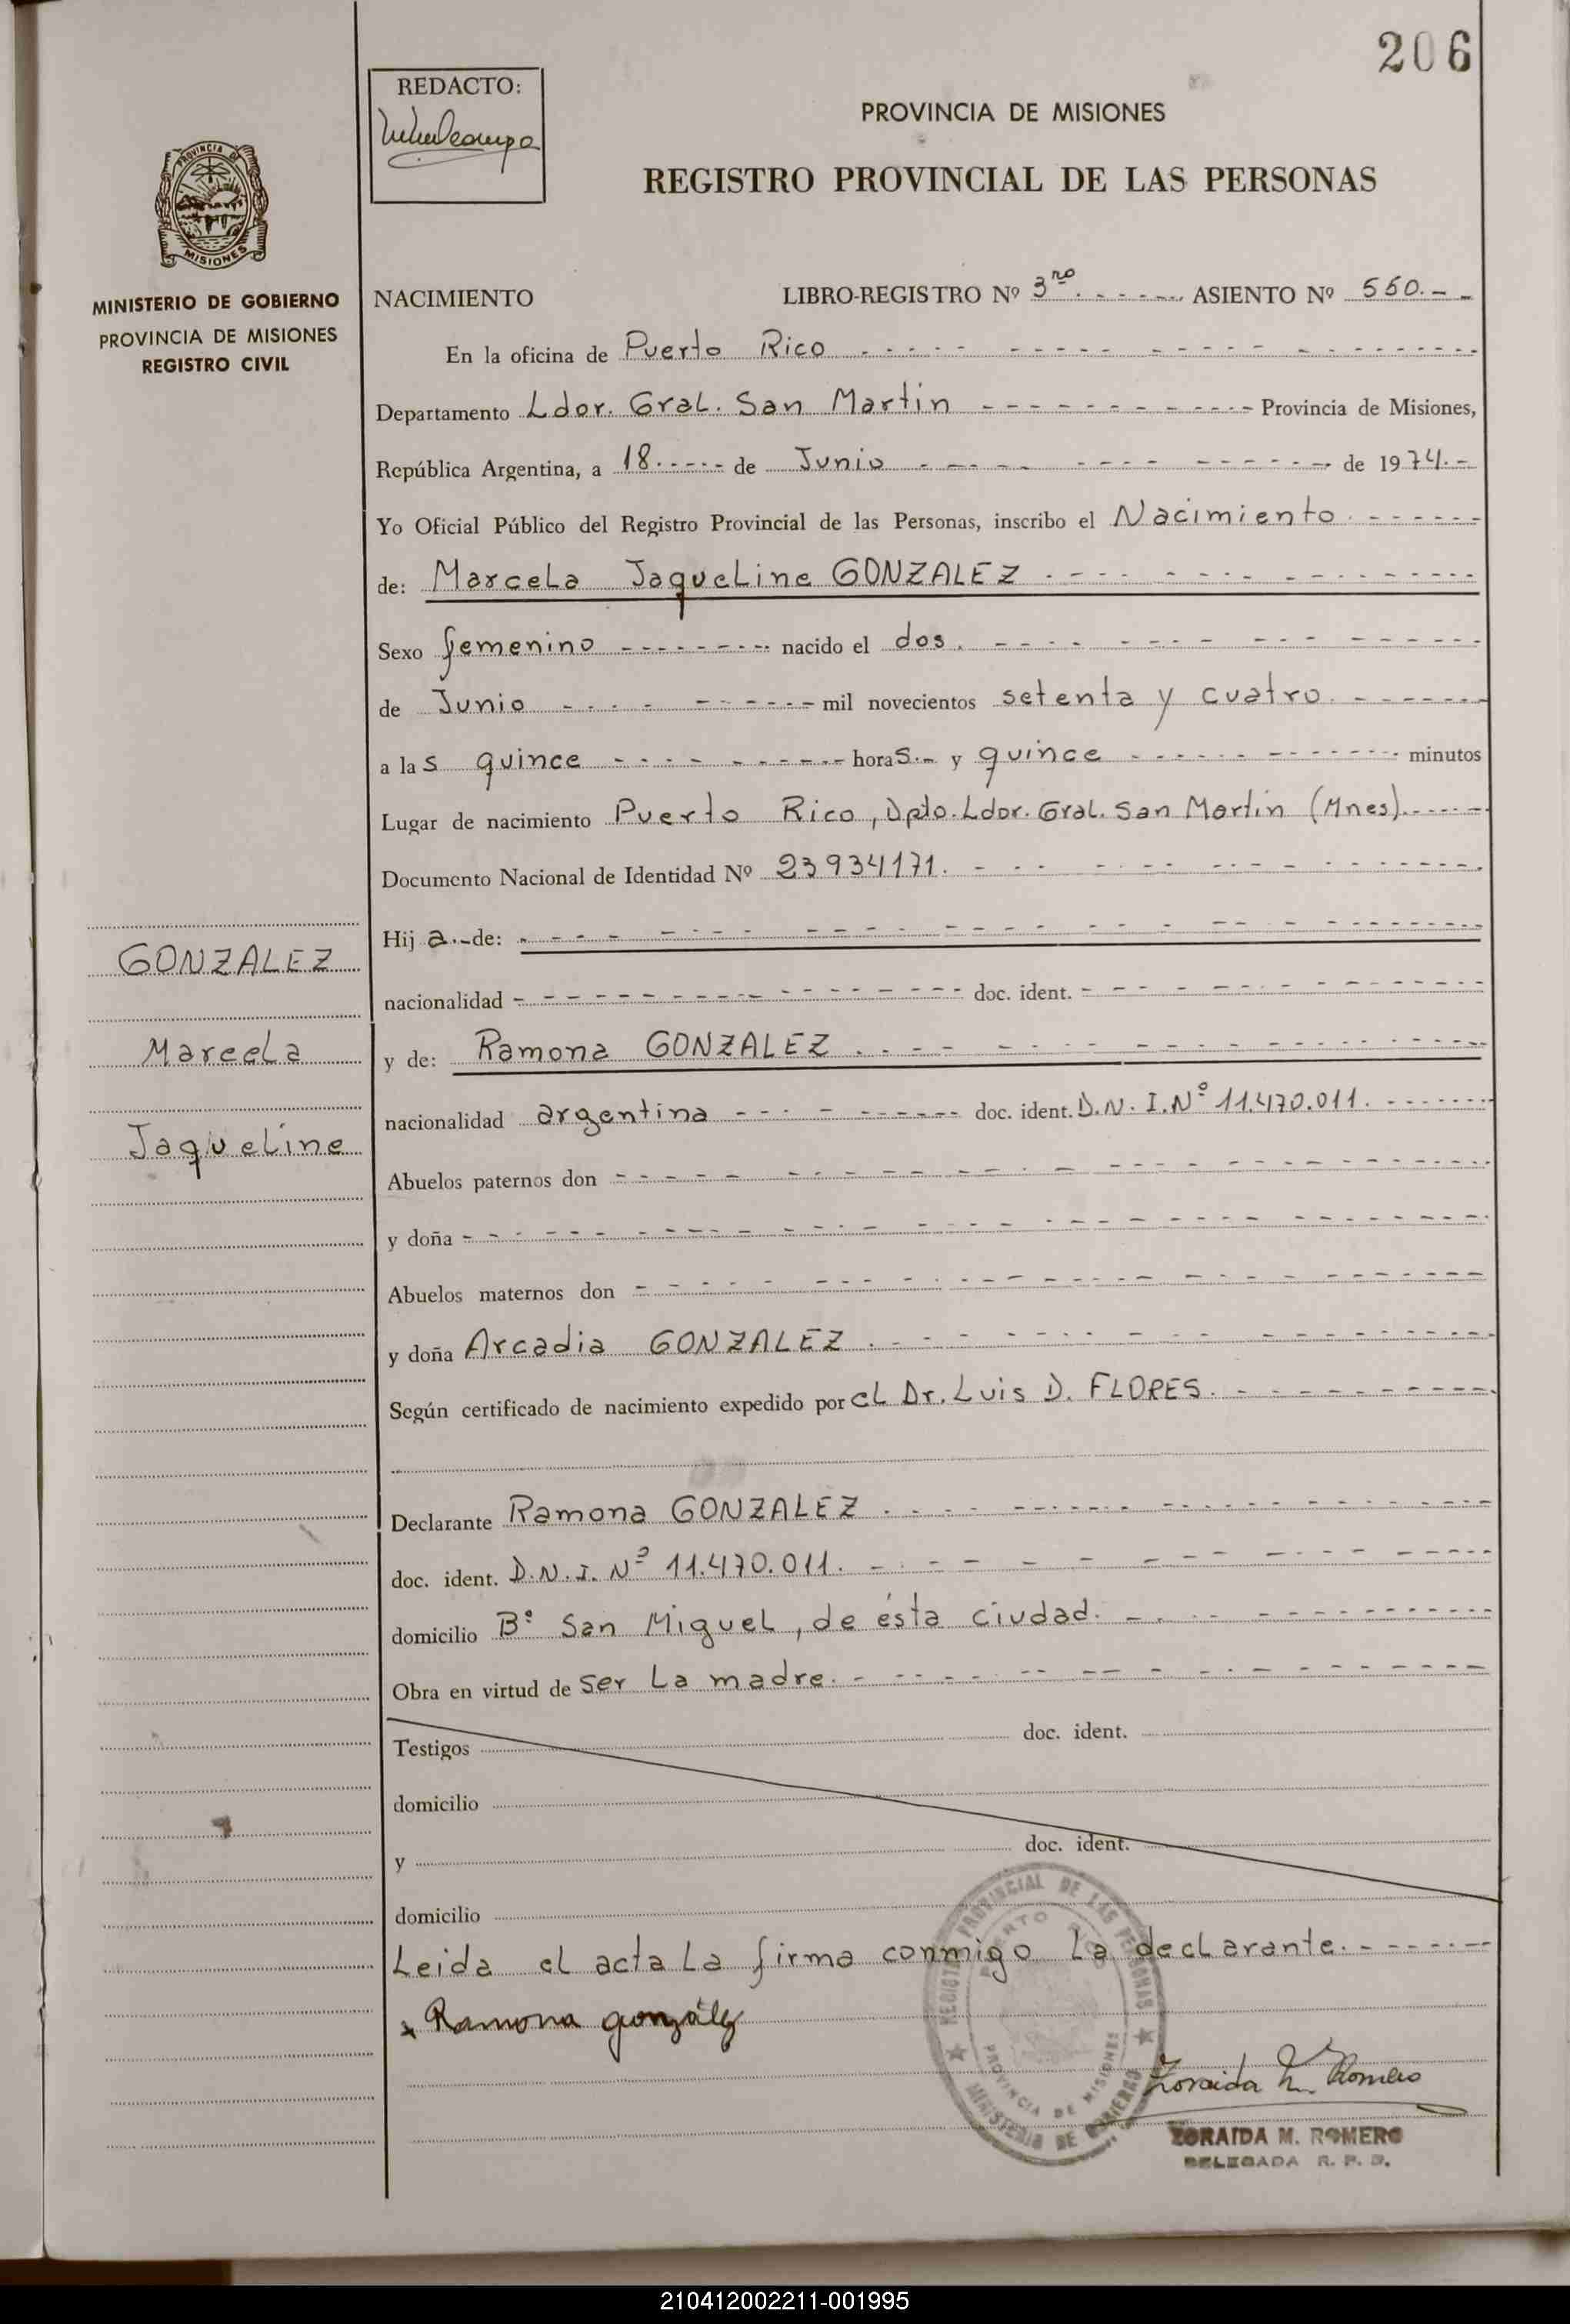 206
REDACTO:
PROVINCIA DE MISIONES
REGISTRO PROVINCIAL DE LAS PERSONAS
PROVINCIA DE
MISIONES
MINISTERIO DE GOBIERNO
PROVINCIA DE MISIONES
REGISTRO CIVIL
NACIMIENTO LIBRO-REGISTRO Nº 3ro. ASIENTO Nº 560.-
En la oficina de Puerto Rico
Departamento Ldor. Gral. San Martin Provincia de Misiones,
República Argentina, a 18 de Junio de 1974.-
Yo Oficial Público del Registro Provincial de las Personas, inscribo el Nacimiento
de: Marcela Jaqueline GONZALEZ
Sexo femenino nacido el dos.
de Junio mil novecientos setenta y cuatro
a las quince horas.- y quince minutos
Lugar de nacimiento Puerto Rico, Dpto. Ldor. Gral. San Martin (Mnes).
Documento Nacional de Identidad Nº 23934171.
Hija.-de:
nacionalidad doc. ident.
y de: Ramona GONZALEZ.
nacionalidad argentina doc. ident. D.N.I.Nº 11.470.011.
Abuelos paternos don
y doña
Abuelos maternos don
y doña Arcadia GONZALEZ.
Según certificado de nacimiento expedido por el Dr. Luis D. FLORES.
Declarante Ramona GONZALEZ.
doc. ident. D.N.I. Nº 11.470.011.
domicilio Bº San Miguel, de ésta ciudad.
Obra en virtud de ser la madre.
Testigos doc. ident.
domicilio
y doc. ident.
domicilio
Leida el acta la firma conmigo la declarante.
x Ramona gonzález
GONZALEZ
Marcela
Jaqueline
REGISTRO PROVINCIAL DE LAS PERSONAS
PUERTO RICO
PROVINCIA DE MISIONES
MINISTERIO DE GOBIERNO
Zoraida M. Romero
ZORAIDA M. ROMERO
DELEGADA R. P. P.
210412002211-001995